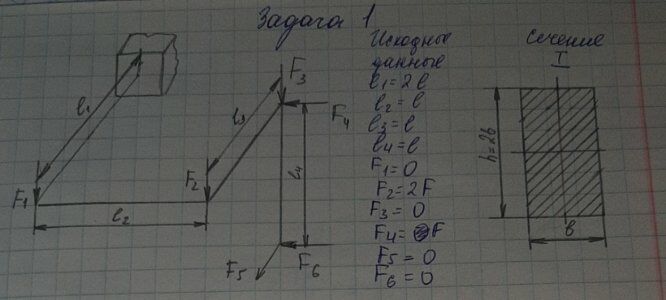 Задача 1
Исходные
данные
l1 = 2l
l2 = l
l3 = l
l4 = l
F1 = 0
F2 = 2F
F3 = 0
F4 = F
F5 = 0
F6 = 0
сечение
I
h=2b
b
l1
F1
l2
F2
l3
F3
F4
l4
F5
F6